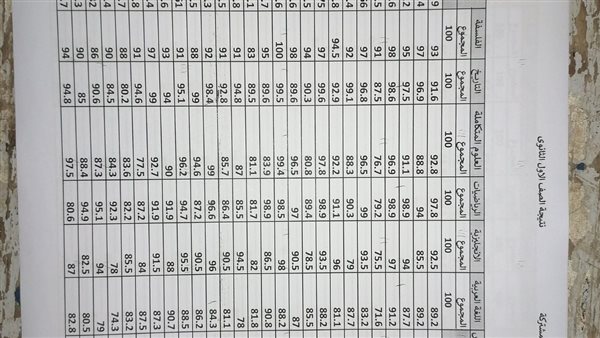 نتيجة الصف الاول الثانوى
مشتركة
اللغة العربية الانجليزية الرياضيات العلوم المتكاملة التاريخ الفلسفة
المجموع المجموع المجموع المجموع المجموع المجموع
100 100 100 100 100 100
89.2 92.5 97.8 92.8 91.6 93
89.2 85.5 94 88.8 96.9 97
87.7 94 98.9 91.1 97.5 95
91.2 97 98.9 96.9 98.6 98
71.6 75.5 79.2 76.7 87.5 91
83.2 93.5 99 96.5 96.8 97
87.7 79 90.3 88.3 99.1 92
81.1 96 91.1 92.2 92.9 94.5
88.2 93.5 98.9 97.8 99.6 97
85.5 78.5 89.4 80.8 90.3 94
87 90.5 97 96.5 89.6 98
88.2 98 98.5 99.4 99.5 100
90.8 86.5 98.9 83.9 89.6 95
81.8 82 81.7 81.1 83.5 83
78 94.5 85.5 87 94.8 91
81.1 90.5 86.4 85.7 92.8 91
84.3 96 96.6 99 98.4 92
86.2 90.5 87.2 94.6 99 88
88.5 95.5 94.7 96.2 95.1 91
90.7 88 91.9 90 94 93
87.3 91.5 91.9 92.7 99 97
87.5 84 87.2 77.5 94.6 91
83.2 85.5 82.2 83.6 80.2 88
74.3 78 92.3 84.6 84.5 90
79 94 95.1 87.3 90.6 86
80.5 82.5 94.9 88.4 85 90
82.8 87 80.6 97.5 94.8 94